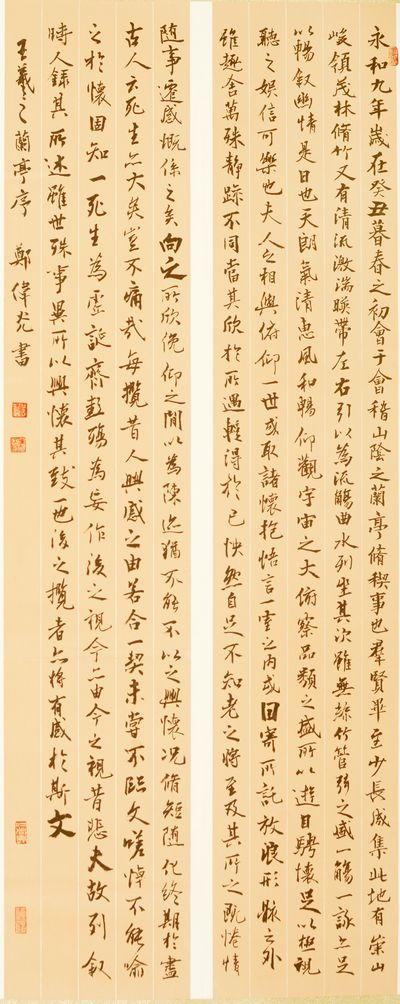 永和九年歲在癸丑暮春之初會于會稽山陰之蘭亭脩稧事也羣賢畢至少長咸集此地有崇山
峻領茂林脩竹又有清流激湍暎帶左右引以為流觴曲水列坐其次雖無絲竹管弦之盛一觴一詠亦足
以暢叙幽情是日也天朗氣清惠風和暢仰觀宇宙之大俯察品類之盛所以遊目騁懷足以極視
聽之娛信可樂也夫人之相與俯仰一世或取諸懷抱悟言一室之內或因寄所託放浪形骸之外
雖趣舍萬殊靜躁不同當其欣於所遇蹔得於己怏然自足不知老之將至及其所之既惓情
随事遷感慨係之矣向之所欣俛仰之間以為陳迹猶不能不以之興懷況脩短随化終期於盡
古人云死生亦大矣豈不痛哉每攬昔人興感之由若合一契未嘗不臨文嗟悼不能喻
之於懷固知一死生為虛誕齊彭殤為妄作後之視今亦由今之視昔悲夫故列叙
時人錄其所述雖世殊事異所以興懷其致一也後之攬者亦將有感於斯文
王羲之蘭亭序 鄭偉光書